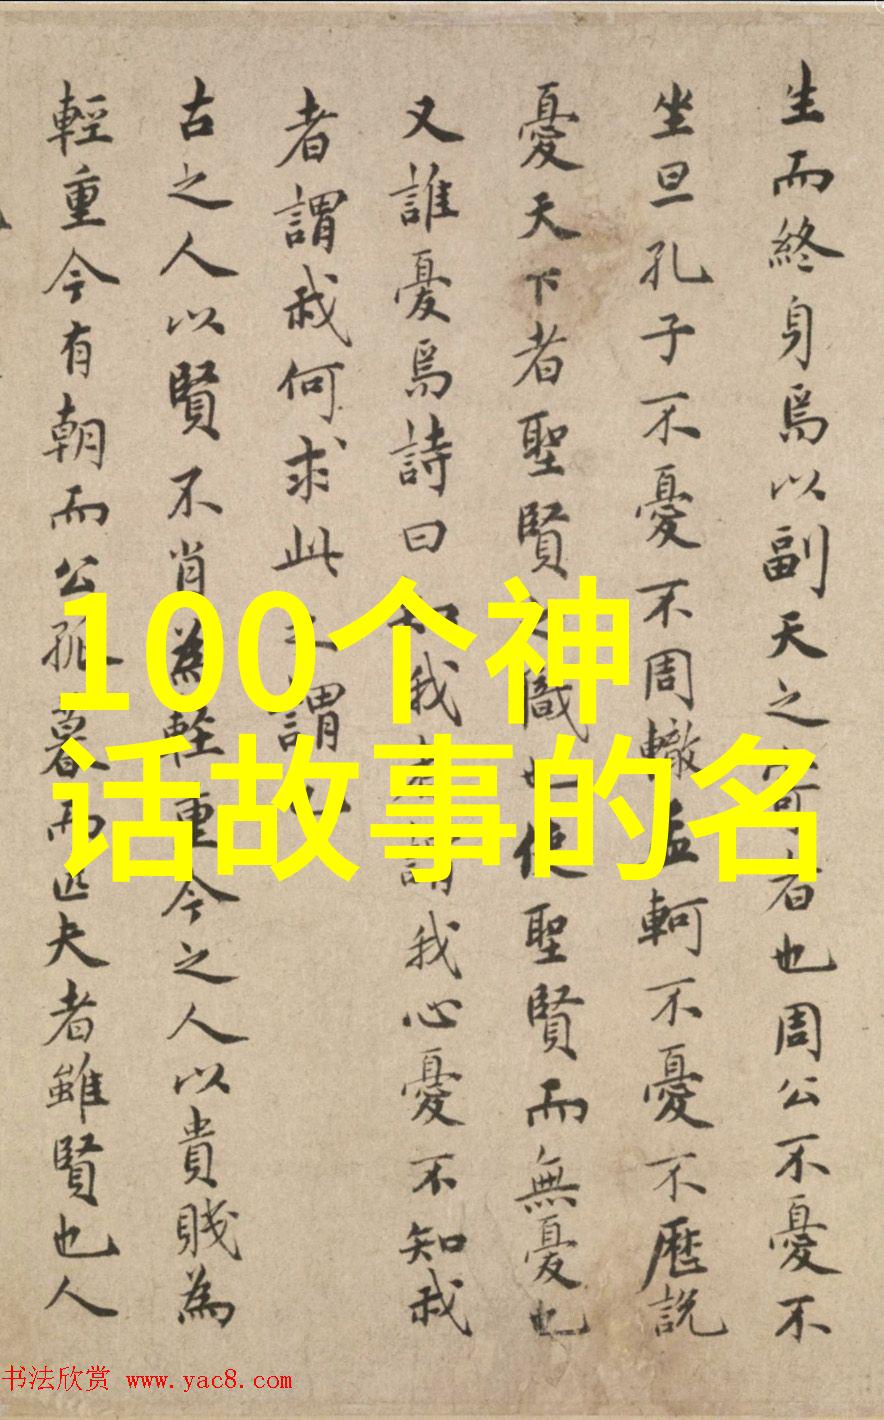 生而終身焉以副天之者也周公不憂不
坐旦孔子不憂不周轍孟軻不憂不歷說
憂天下者聖賢之職也使聖賢而無憂也
又誰憂焉詩曰知我者謂我心憂不知我
者謂我何求此之謂也
古之人以賢不肖為輕重今之人以貴賤為
輕重今有朝而公孤暮而匹夫者雖賢也人
100个神
话故事的名
书法欣赏 www.yac8.com